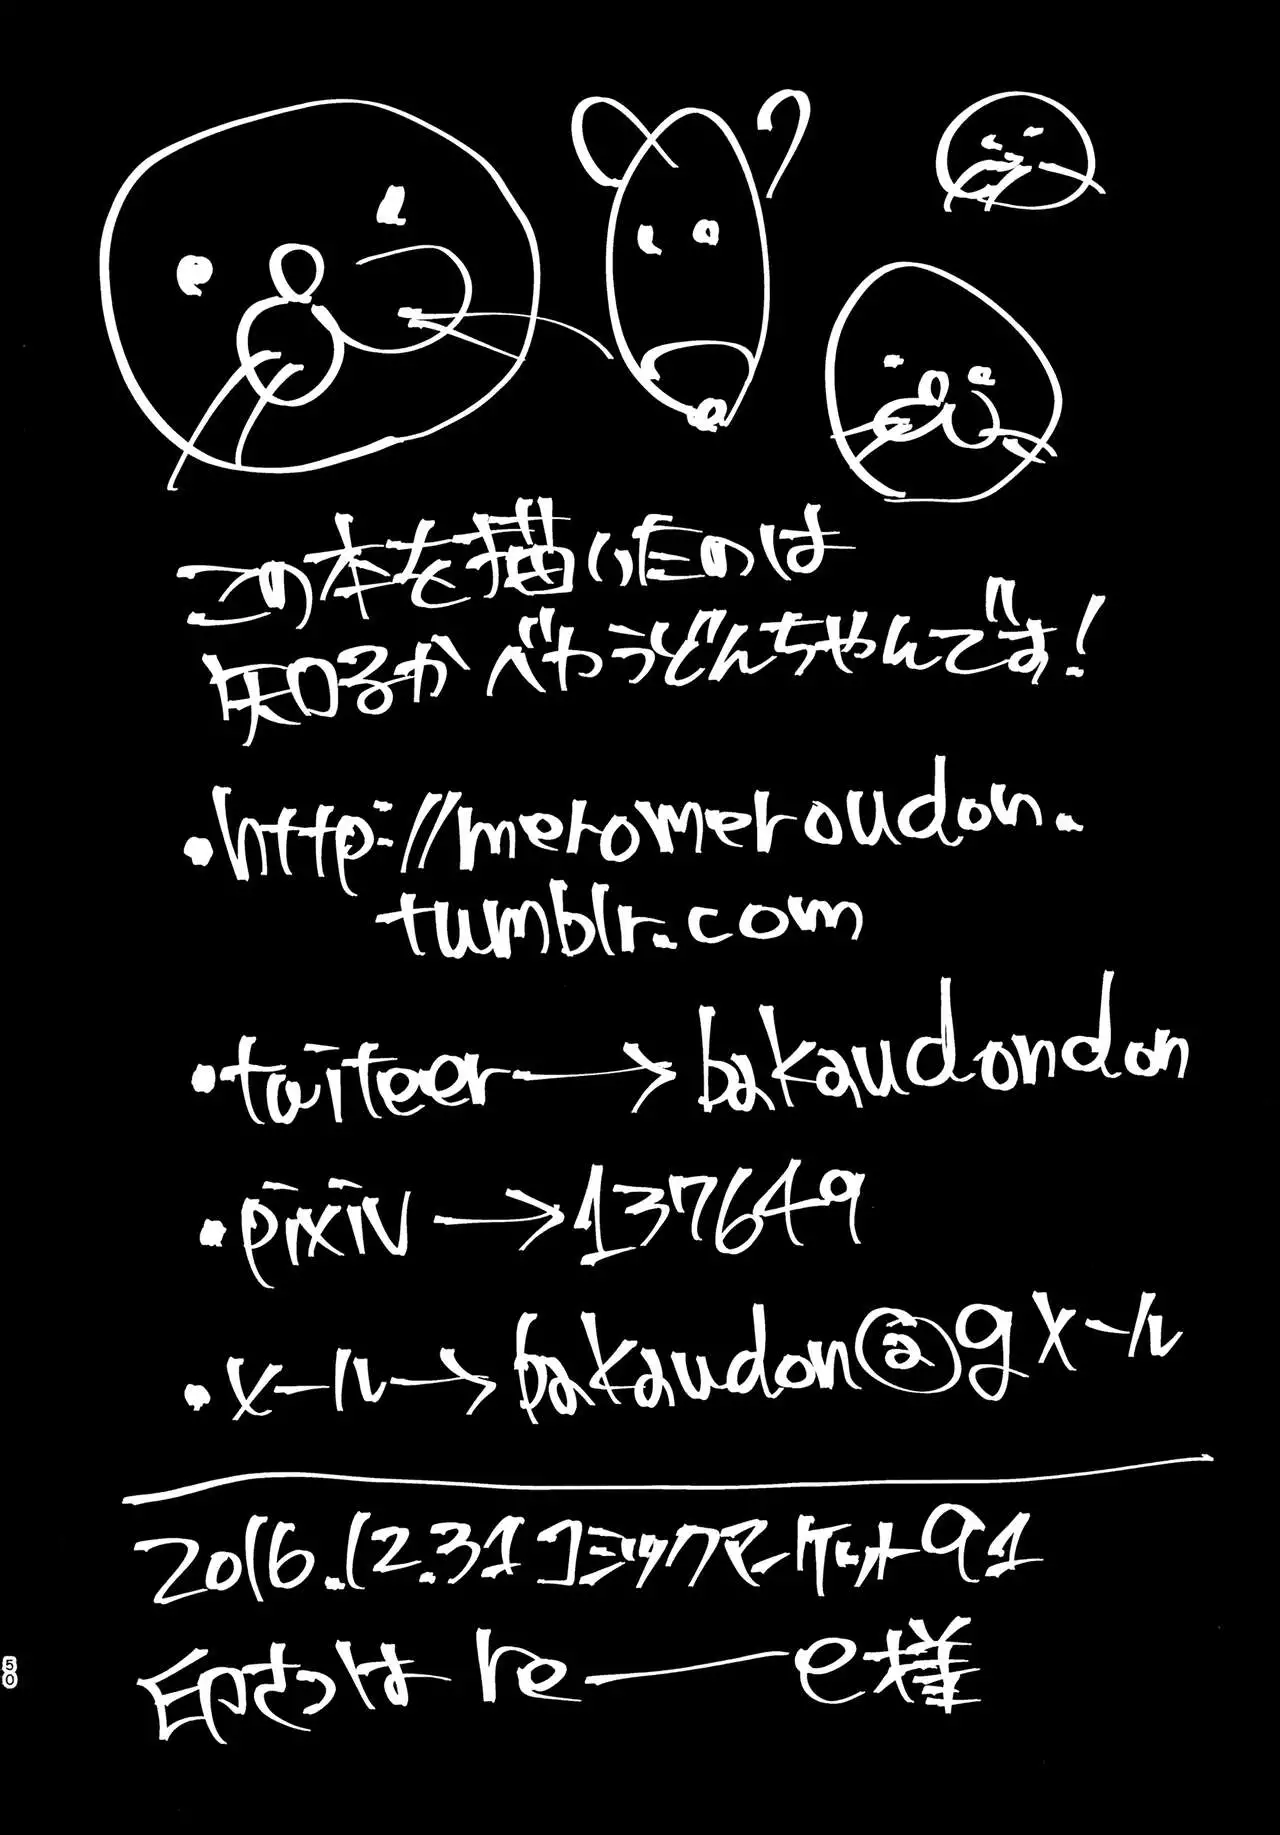 この本を描いたのは
知るかバかうどんちゃんです!
・http://meromeroudon.
tumblr.com
・twiteer→bakaudondon
・pixiv→137649
・メール→bakaudon@gメール
2016.12.31コミックマーケット91
印さつは re――e様
50